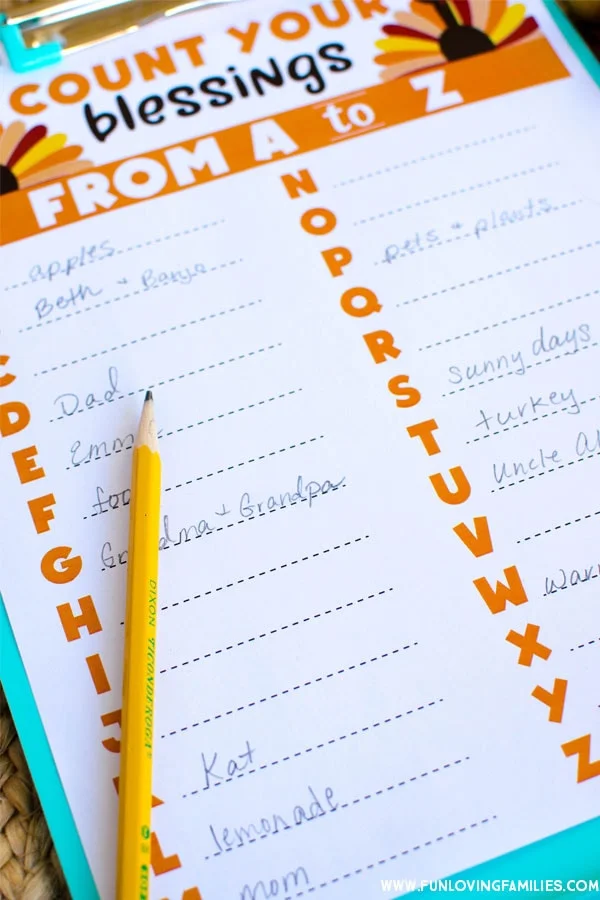 COUNT YOUR
blessings
FROM A to Z
apples
Beth + Banjo
C
D Dad
E
F
G Grandma + Grandpa
H
I
J
K Kat
L lemonade
M mom
N
O
P pets + plants
Q
R
S sunny days
T turkey
U Uncle
V
W
X
Y
Z
DIXON TICONDEROGA
WWW.FUNLOVINGFAMILIES.COM